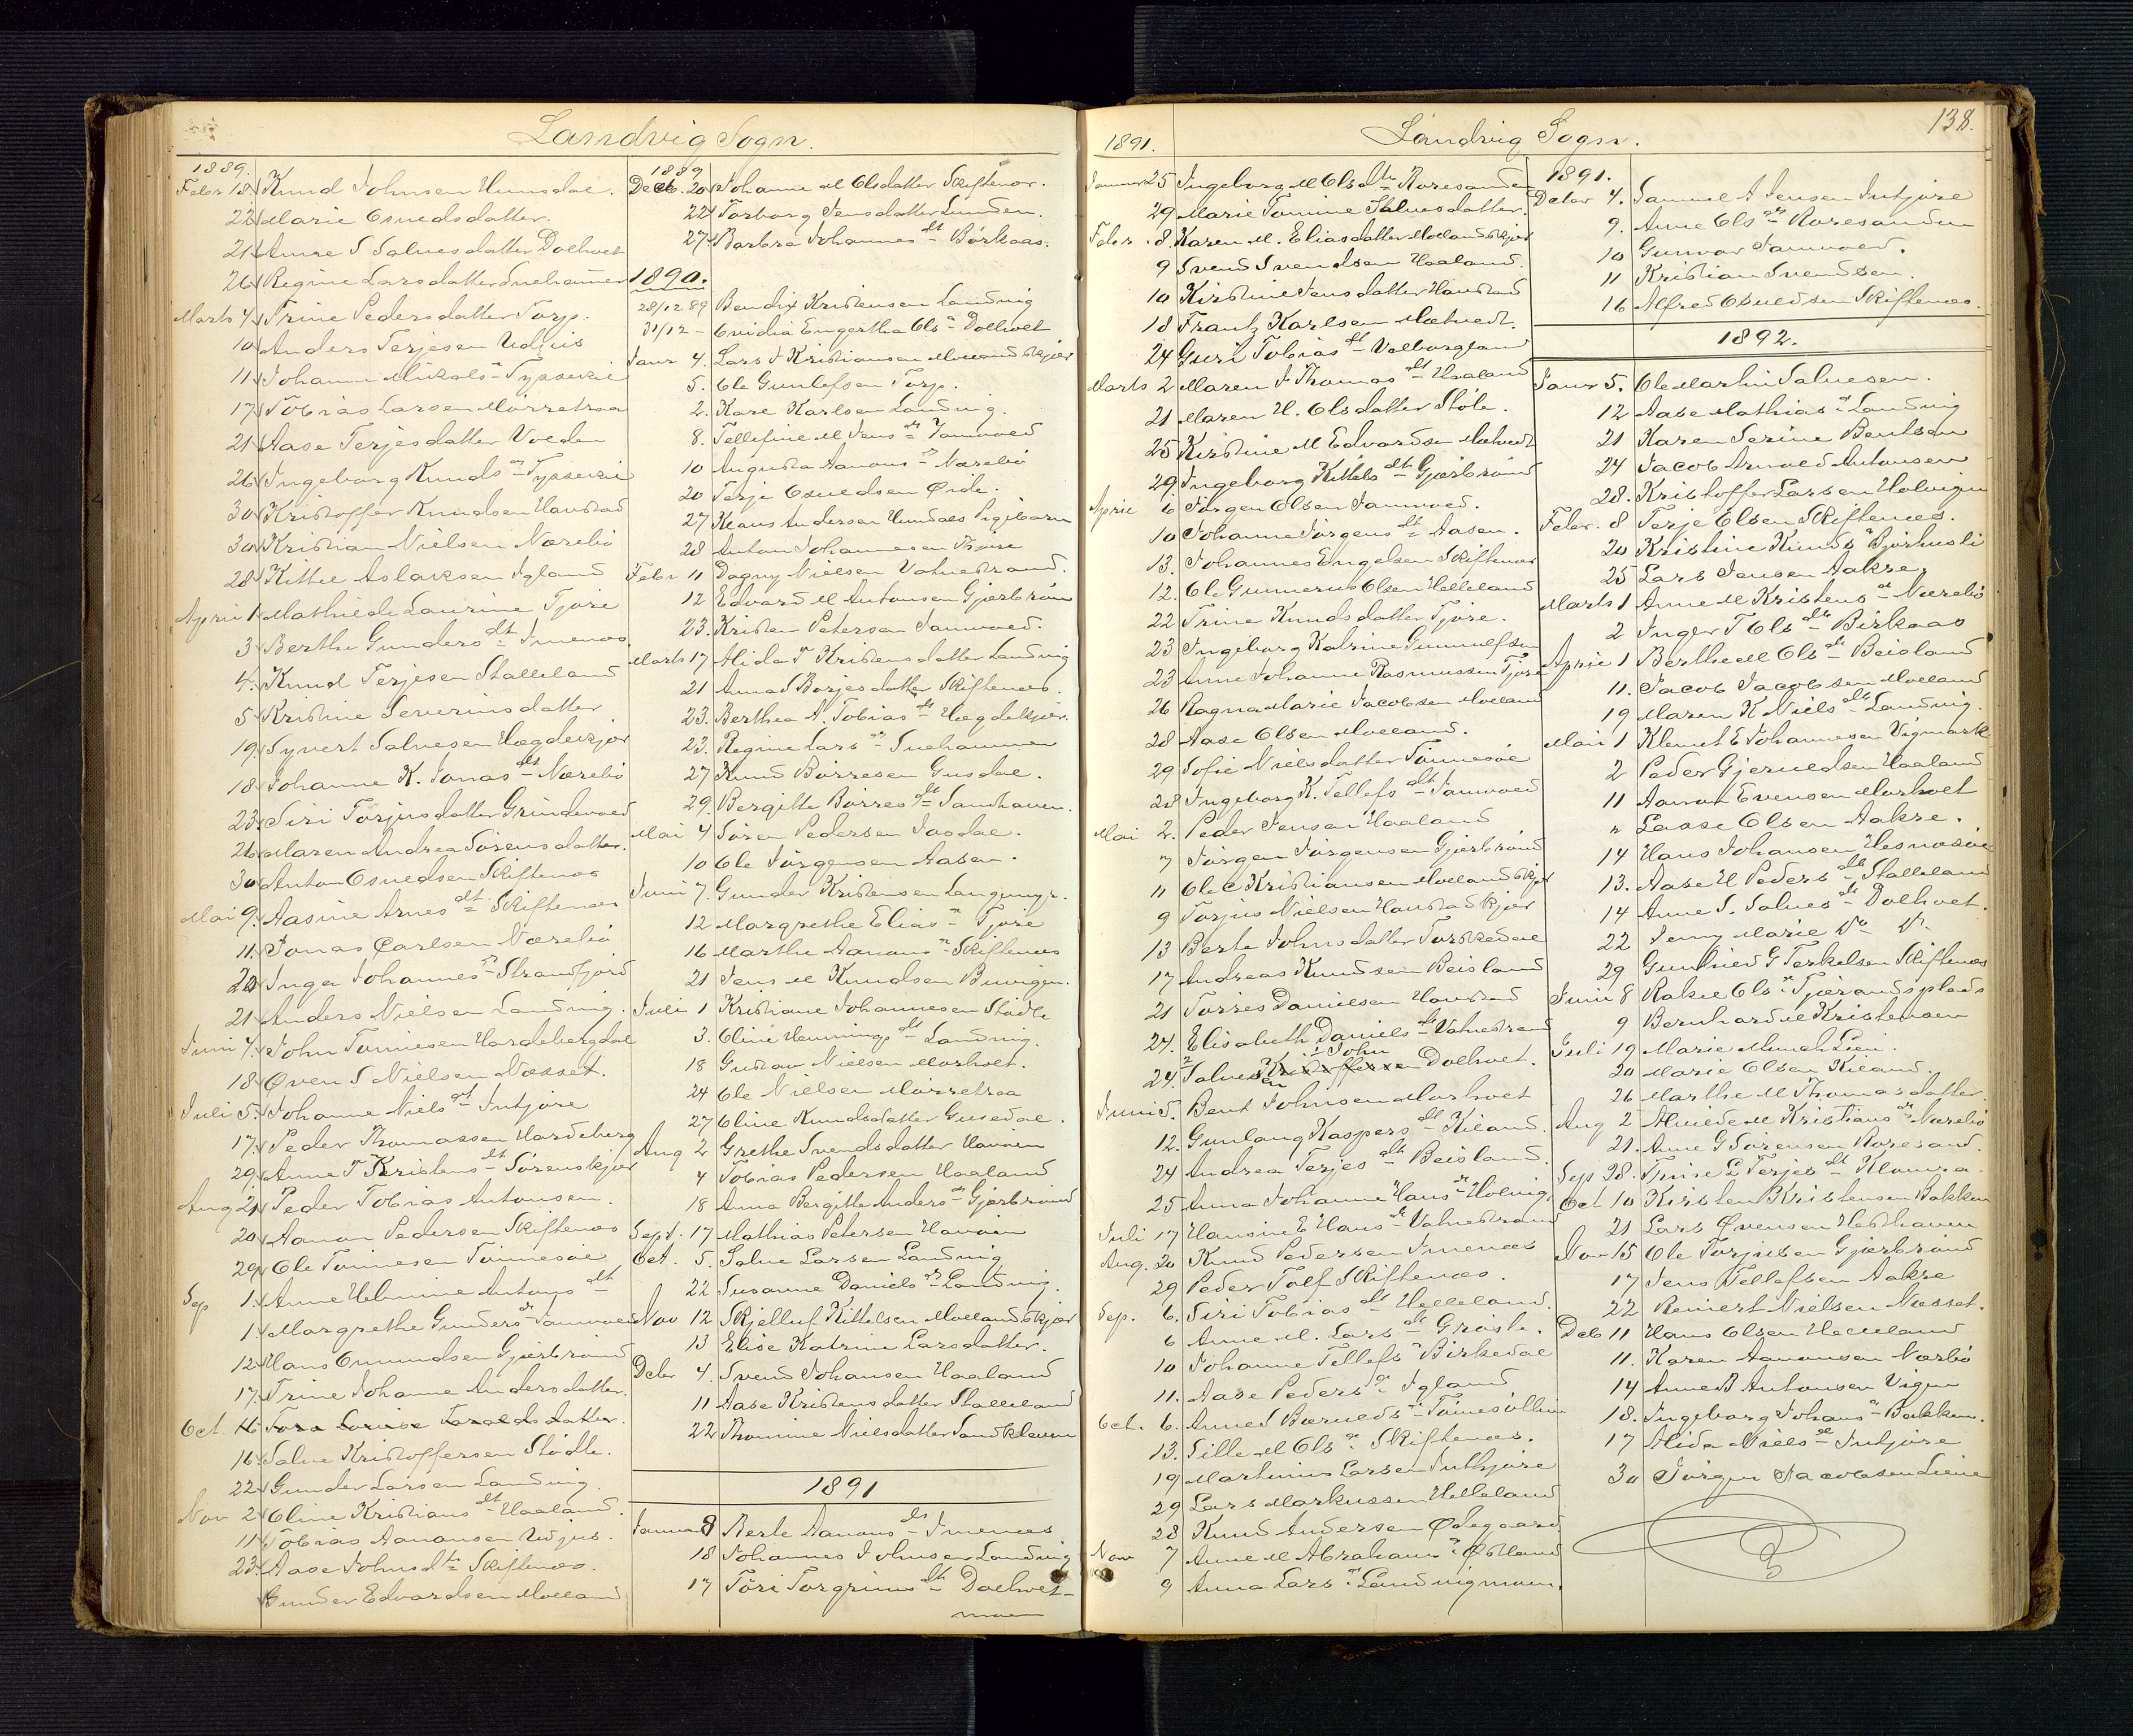 Landvig Sogn.
1889.
Febr 18. Knud Johnsen Hunsdal.
22 Marie Osuldsdatter.
21 Anne S Salvesdatter Dolhvet
26 Regine Larsdatter Snehammer
Marts 4 Trine Pedersdatter Torp.
10 Anders Terjesen Udjus
11 Johanne Mikals
17 Tobias Larsen Mørretraa
21 Aase Terjesdatter Volden
26 Ingeborg Knuds
30 Kristoffer Knudsen Haustad
30 Kristian Nielsen Nærebø
28 Kittel Aslaksen Igland
April 1 Mathilde Laurine Tjøre
3 Berthe Gunders dt Imenes
4. Knud Terjesen Stalleland
5 Kristine Severinsdatter
19 Syvert Salvesen Høgdekjær
18 Johanne K. Jonas dt Nærebø
23 Siri Torjusdatter Grindevold
26 Maren Andrea Sørensdatter.
30 Anton Osuldsen Skiftenes
Mai 9. Aasine Arnes dt Skiftenes
11. Jonas Carlsen Nærebø
20 Inger Johannes dt Strandfjord
21 Anders Nielsen Landvig.
Juni 4. John Tønnesen Hardebergdal
18 Øven S Nielsen Næsset.
Juli 5. Johanne Niels dt Intjøre
17. Peder Thomassen Hardeberg
29. Anne T Kristens dt Sørenskjær
Aug 21 Peder Tobias Antonsen.
20 Aanon Pedersen Skiftenes
29 Ole Tønnesen Tønnesøle
Sep 1. Anne Helmine Antons dt
1. Margrethe Gunders dt Tamvold
12 Hans Omundsen Gjærbrønd
17. Trine Johanne Andersdatter.
Oct. 16 Tora Lovise Taraldsdatter.
16. Salve Kristoffersen Stødle.
22 Gunder Larsen Landvig
Nov 2 Oline Kristians dt Haaland.
11 Tobias Aanonsen Udjus.
23. Aase Johns dtr Skiftenes.
Gunder Edvardsen Molland
1889
Decb. 20 Johanne M Olsdatter Skiftenes.
22 Torborg Jensdatter Lunden.
27 Barbra Johannes dt Børkaas.
1890.
28/12 89 Bendix Kristensen Landvig
31/12 - Ovidia Engertha Ols dt Dolhvet
Janr 4. Lars J Kristiansen Mollandskjær
5. Ole Gunlefsen Torp.
2. Kare Karlsen Landvig.
8. Tellefine M Jens dt Tamvold
10 Augusta Aanons dt Nærebø
20 Terje Osuldsen Øide.
27 Klaus Andersen Hundals Pigebarn
28 Anton Johannesen Tjøre
Febr 11 Dagny Nielsen Vatnestrand.
12 Edvard M Antonsen Gjærbrøn
23. Kristen Petersen Tamvold.
Marts 17 Alida T Kristensdatter Landvig
21 Anna S Børjesdatter Skiftenes.
23. Berthea N. Tobias dt Høgdekjær.
23. Regine Lars dt Snehammer
27 Knud Børresen Gusdal.
29. Bergitte Børres dt Sandhaven.
Mai 4 Søren Pedersen Josdal.
10 Ole Jørgensen Aasen.
Juni 7. Gunder Kristensen Langmyr.
12 Margrethe Elias dt Tjøre
16 Marthe Aanons dt Skiftenes
21 Jens M Knudsen Buvigen.
Juli 1 Kristiane Johannesen Stødle
3. Oline Hennings dt Landvig.
18 Gustav Nielsen Morhvet.
24 Ole Nielsen Mørretraa
27 Oline Knudsdatter Gusedal.
Aug 2 Grethe Svendsdatter Havsen
4 Tobias Pedersen Haaland
18 Anna Bergitte Anders dt Gjærbrønd
Sept. 17 Mathias Petersen Havsen
Oct. 5. Salve Larsen Landvig
22 Susanne Daniels dt Landvig.
Nov 12 Skjelluf Kittelsen Mollandskjær
13 Elise Katrine Larsdatter.
Decbr 4. Svend Johansen Haaland
11 Aase Kristensdatter Stalleland
22 Thomine Nielsdatter Sandkleven
1891
Januar 8 Berte Aanons dt Imenes
18 Johannes Johnsen Landvig
17 Tøri Torgrims dt Dolhvet-
moen
138.
1891.
Landvig Sogn.
Januar 25 Ingeborg M Ols dtr Roresanden
29 Marie Tomine Salvesdatter.
Febr. 8. Karen M. Eliasdatter Mollandskjær
9 Svend Svendsen Haaland.
10 Kirstine Jensdatter Haustad
18 Frantz Karlsen Molvedt.
24 Guri Tobias dt Valborgland
Marts 2 Maren J Thomas dt Haaland
21 Maren H. Olsdatter Støle.
25 Kirstine M Edvardsen Molvedt
29 Ingeborg Kittels dt Gjærbrønd
April 6 Jørgen Olsen Tamvold.
10 Johanne Jørgens dt Aasen.
13. Johannes Engelsen Skiftenes
12. Ole Gunnerius Olsen Helleland
22 Trine Knudsdatter Tjøre.
23 Ingeborg Katrine Gunnulfsen
23 Anne Johanne Rasmussen Tjøre
26 Ragna Marie Jacobsen Molland
28 Aase Olsen Molland.
29 Sofie Nielsdatter Tønnesøle
28 Ingeborg K. Tellefs dt Tamvold
Mai 2. Peder Jensen Haaland
7 Jørgen Jørgensen Gjærbrønd
11 Ole C Kristiansen Mollandskjær
9 Torjus Nielsen Haustadkjær
13 Berte Johnsdatter Torskedal
17 Andreas Knudsen Beisland
21 Torres Danielsen Haustad
24. Elisabeth Daniels dt Vatnestrand
24. Salvesen John Dolhvet.
Juni 5. Bent Johnsen Morhvet
12. Gunlaug Kaspers dt Kiland.
24 Andrea Terjes dt Beisland.
25 Anna Johanne Hans dt Holvig.
Juli 17 Hansine E Hans dt Vatnestrand
Aug. 20 Knud Pedersen Imenes
29 Peder Tolf Skiftenes.
Sep. 6. Siri Tobias dt Helleland.
6 Anne M. Lars dt Grøsle.
10 Johanne Tellefs dt Birkedal
11. Aase Peders dt Igland
Oct. 6. Anne S Børulds dt
13. Sille M Ols dt Skiftenes.
19 Martinius Larsen Intkjøre
29 Lars Markussen Helleland
28 Knud Andersen Ødegaard
Nov 7 Anne M Abrahams dt Østland
9 Anna Lars dt Landvigmoen.
1891.
Decbr 4. Samuel A Jensen Intjøre
9. Anne Ols dt Roresanden
10 Gunvor Tamvold.
11 Kristian Svendsen.
16 Alfred Osuldsen Skiftenes.
1892.
Janr 5. Ole Martin Salvesen.
12 Aase Mathias dt Landvig
21 Karen Serine Bentsen
24 Jacob Arnold Antonsen
28. Kristoffer Larsen Holvigen
Febr. 8 Terje Olsen Skiftenes.
20 Kristine Knuds dt Bjørhusli
25 Lars Jensen Aakre,
Marts 1 Anne M Kristens dt Nærebø
2 Inger T Ols dt Birkaas
April 1 Berthe M Ols dt Beisland
11. Jacob Jacobsen Molland
19 Maren K Niels dt Landvig.
Mai 1 Klemet E Johannesen Vigmark
2 Peder Gjeruldsen Haaland
11 Aanon Evensen Morhvet
" Lasse Olsen Aakre.
14 Hans Johansen Hesnesøie
13. Aase H Peders dt Stalleland
14 Anne S. Salves dt Dolhvet.
22 Jenny Marie Do Do
29 Gunhild G Terkelsen Skiftenes
Juni 8 Rakel Ols dt Tjærandsplads
9 Bernhard M Kristensen
Juli 19 Marie Munch Lien.
20 Marie Olsen Kiland.
26 Marthe M Thomasdatter.
Aug 2 Almilde M Kristians dt Nærebø
21. Anne G Sørensen Roresand.
Sep 28. Trine L Terjes dt Klovra
Oct 10 Kristen Kristensen Bakken
21 Lars Øvensen Hesthaven
Nov 15 Ole Torjusen Gjærbrønd
17 Jens Tellefsen Aakre
22 Reinert Nielsen Næsset.
Decb 11 Hans Olsen Helleland
11. Karen Aanonsen Nærbø
14 Anne B Antonsen Vigen
18. Ingeborg Johans dt Bakken.
17 Alida Niels dt Intjøre
30 Jørgen Jacobsen Liene